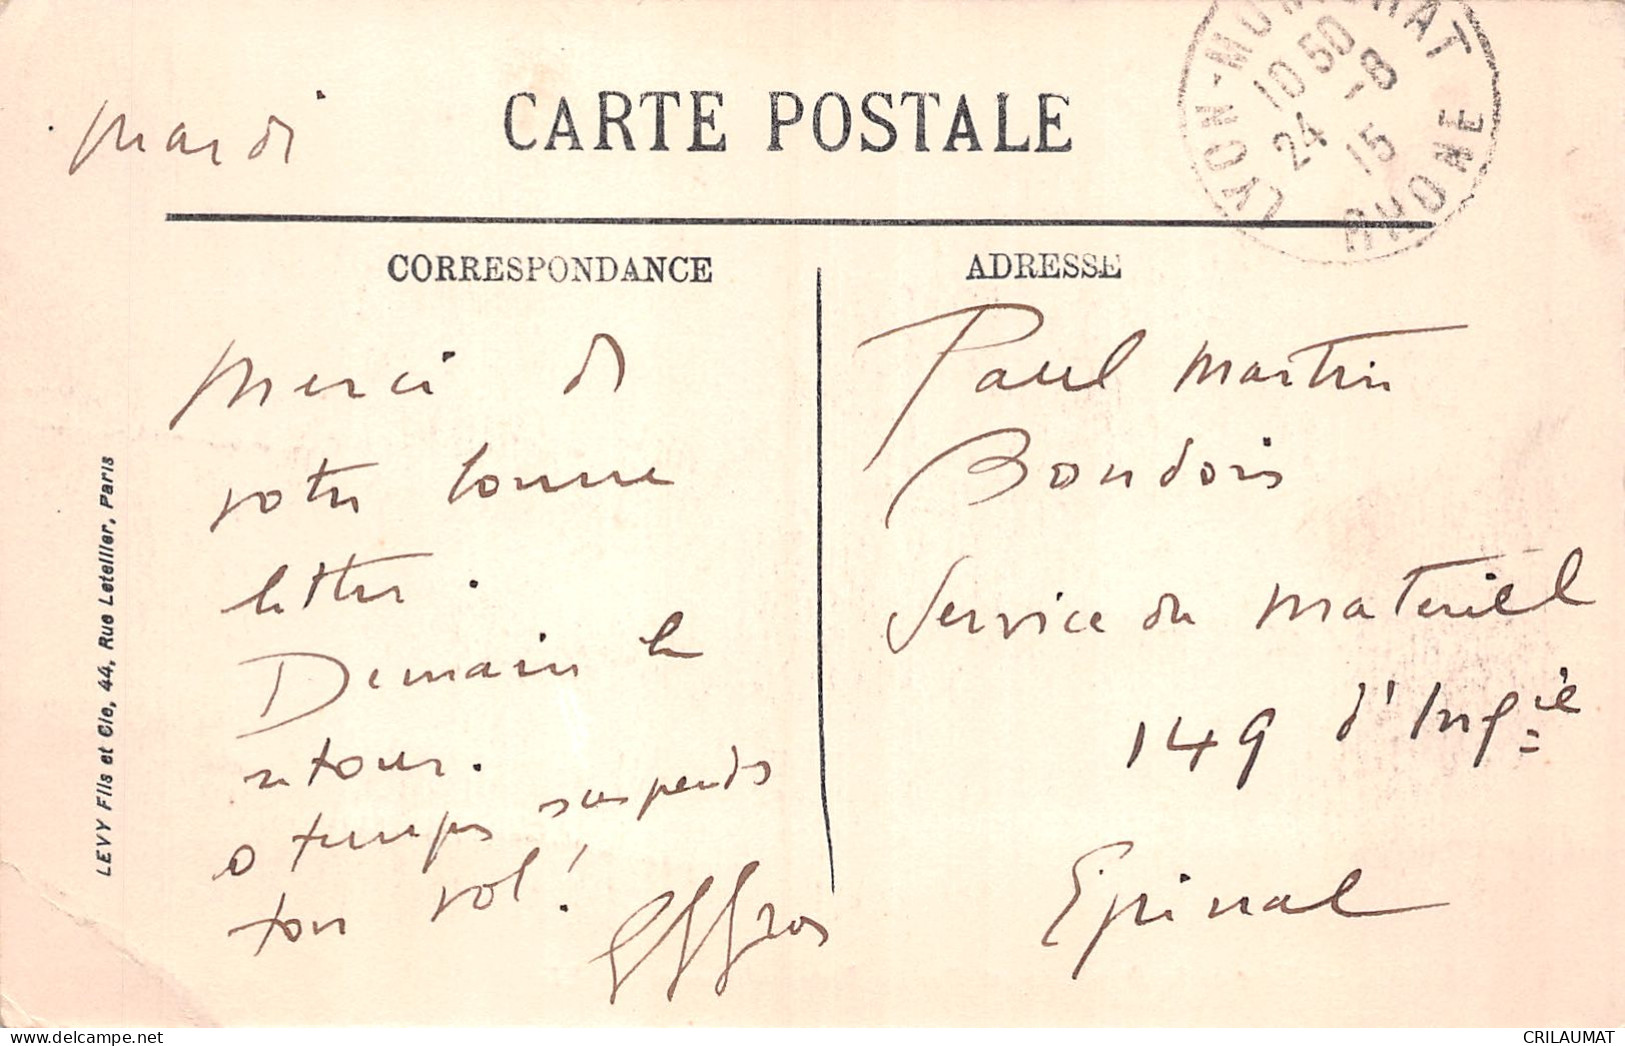 Mardi
CARTE POSTALE
LYON-MONTCHAT
10 50
24 -8
15
RHONE
CORRESPONDANCE
ADRESSE
Merci de
votre bonne
lettre.
Demain le
retour.
o temps suspends
ton vol!
Paul Martin
Service du Materiel
149 d'Infie
Epinal
LEVY Fils et Cie, 44, Rue Letellier, Paris
CRILAUMAT